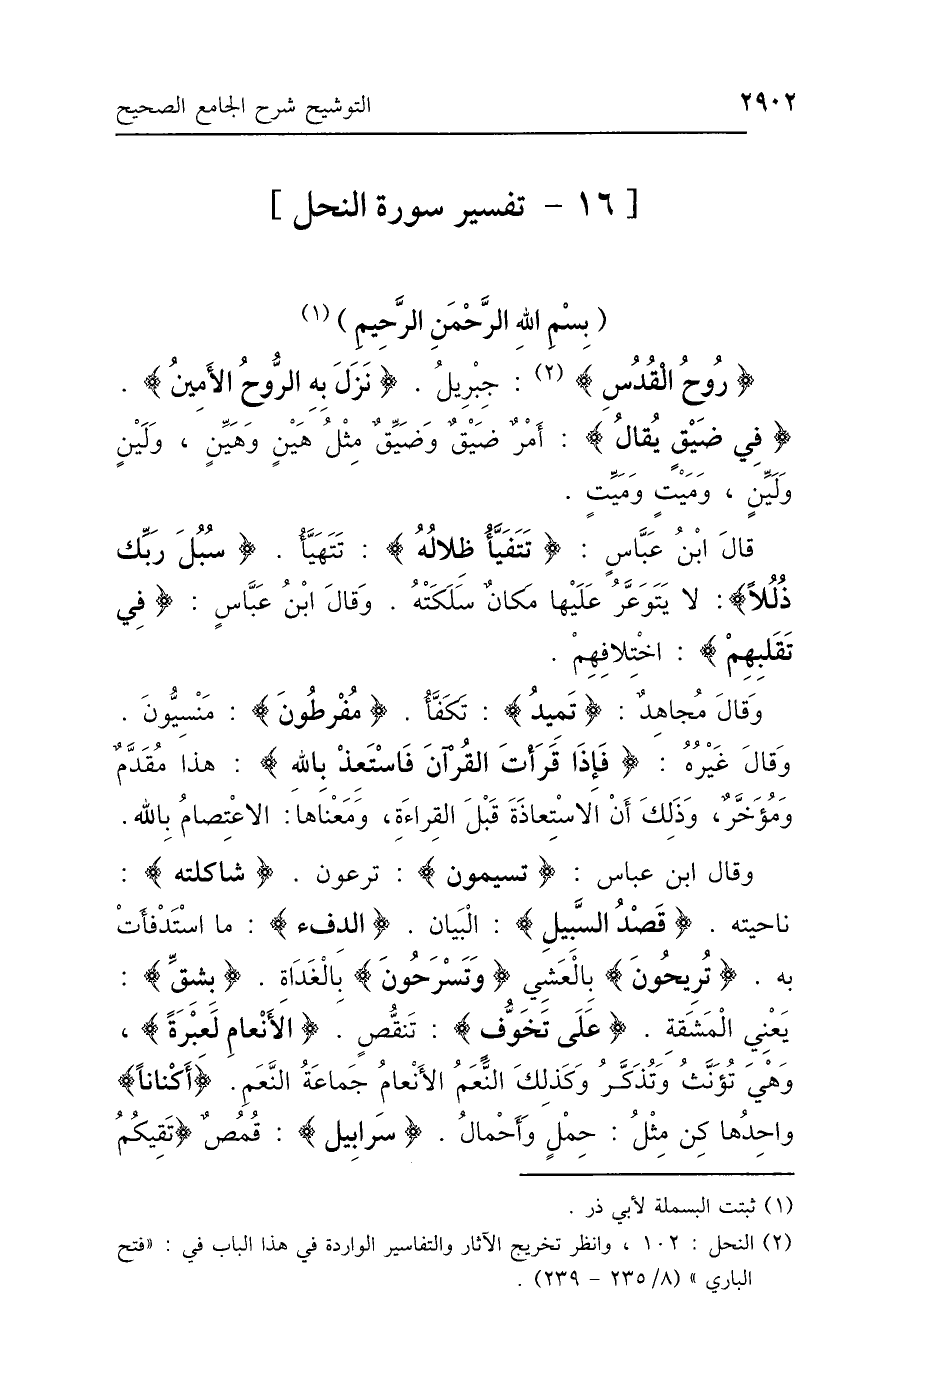 ٢٩٠٢ التوشيح شرح الجامع الصحيح
[ ١٦ - تفسير سورة النحل ]
( بِسْمِ اللهِ الرَّحْمَنِ الرَّحِيمِ ) (١)
﴿ رُوحُ الْقُدُسِ ﴾ (٢) : جِبْرِيلُ . ﴿ نَزَلَ بِهِ الرُّوحُ الأَمينُ ﴾ .
﴿ فِي ضَيْقٍ يُقالُ ﴾ : أَمْرٌ ضَيْقٌ وَضَيِّقٌ مِثْلُ هَيْنٍ وَهَيِّنٍ ، وَلَيْنٍ
وَلَيِّنٍ ، وَمَيْتٍ وَمَيِّتٍ .
قالَ ابْنُ عَبَّاسٍ : ﴿ تَتَفَيَّأُ ظِلالُهُ ﴾ : تَتَهَيَّأُ . ﴿ سُبُلَ رَبِّك
ذُلُلاً﴾: لا يَتَوَعَّرُ عَلَيْها مَكانٌ سَلَكَتْهُ . وَقالَ ابْنُ عَبَّاسٍ : ﴿ فِي
تَقَلبِهِمْ ﴾ : اخْتِلافِهِمْ .
وَقَالَ مُجاهِدٌ : ﴿ تَمِيدُ ﴾ : تَكَفَّأُ . ﴿ مُفْرطُونَ ﴾ : مَنْسِيُّونَ .
وَقَالَ غَيْرُهُ : ﴿ فَإِذَا قَرَأْتَ القُرْآنَ فَاسْتَعِذْ بِالله ﴾ : هذا مُقَدَّمٌ
وَمُؤَخَّرٌ، وَذَلِكَ أَنْ الاسْتِعاذَةَ قَبْلَ القِراءَةِ، وَمَعْناها: الاعْتِصامُ بِالله.
وقال ابن عباس : ﴿ تسيمون ﴾ : ترعون . ﴿ شاكلته ﴾ :
ناحيته . ﴿ قَصْدُ السَّبِيلِ ﴾ : الْبَيان . ﴿ الدفء ﴾ : ما اسْتَدْفأَتْ
به . ﴿ تُرِيحُونَ ﴾ بِالْعَشِي ﴿ وَتَسْرَحُونَ ﴾ بِالْغَدَاةِ . ﴿ بِشقِّ ﴾ :
يَعْنِي الْمَشَقةِ . ﴿ عَلَى تَخَوُّف ﴾ : تَنقُّصٍ . ﴿ الأَنْعامِ لَعِبْرَةً ﴾ ،
وَهْيَ تُؤنَّثُ وَتُذكَّرُ وَكَذلِكَ النَّعَمُ الأَنْعامُ جَماعَةُ النَّعَمِ. ﴿أَكْناناً﴾
واحِدُها كن مِثْلُ : حِملٍ وَأَحْمالُ . ﴿ سَرابِيل ﴾ : قُمُصٌ ﴿تَقِيكُمُ
(١) ثبتت البسملة لأبي ذر .
(٢) النحل : ١٠٢ ، وانظر تخريج الآثار والتفاسير الواردة في هذا الباب في : «فتح
الباري » (٨/ ٢٣٥ - ٢٣٩) .